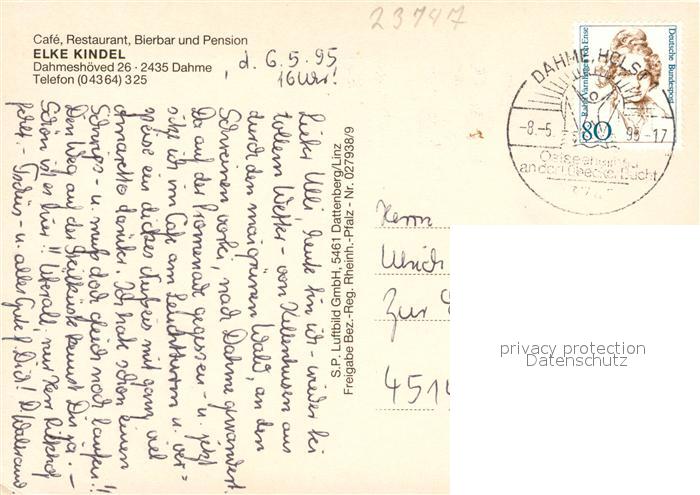 23747
Café, Restaurant, Bierbar und Pension
ELKE KINDEL
Dahmeshöved 26 · 2435 Dahme
Telefon (0 43 64) 3 25
d. 6.5.95
16 Uhr!
Lieber Ulli, heute bin ich - wieder bei
tollem Wetter - von Kellenhusen aus
durch den maigrünen Wald, an den
Schweinen vorbei, nach Dahme gewandert.
Da auf der Promenade gegessen - u. jetzt
sitz ich im Café am Leuchtturm u. ver=
speise ein dickes Nußeis mit ganz viel
Amaretto darüber. Ich hab schon einen
Schwips - u. muß doch gleich noch laufen!!
Den Weg auf der Steilküste kennst Du ja. -
Schön ist es hier!! Überall, nur Herr
fehlt. - Tschüs - u. alles Gute f. Dich! D.
S.P. Luftbild GmbH, 5461 Dattenberg/Linz
Freigabe Bez.-Reg. Rheinh.-Pfalz - Nr. 02793 8/9
Rahel Varnhagen von Ense
Deutsche Bundespost
80
DAHME, HOLST
-8.-5. 95-17
Ostseeheilbad
an der Lübecker Bucht
Herrn
Ulrich
Zur
451
privacy protection
Datenschutz